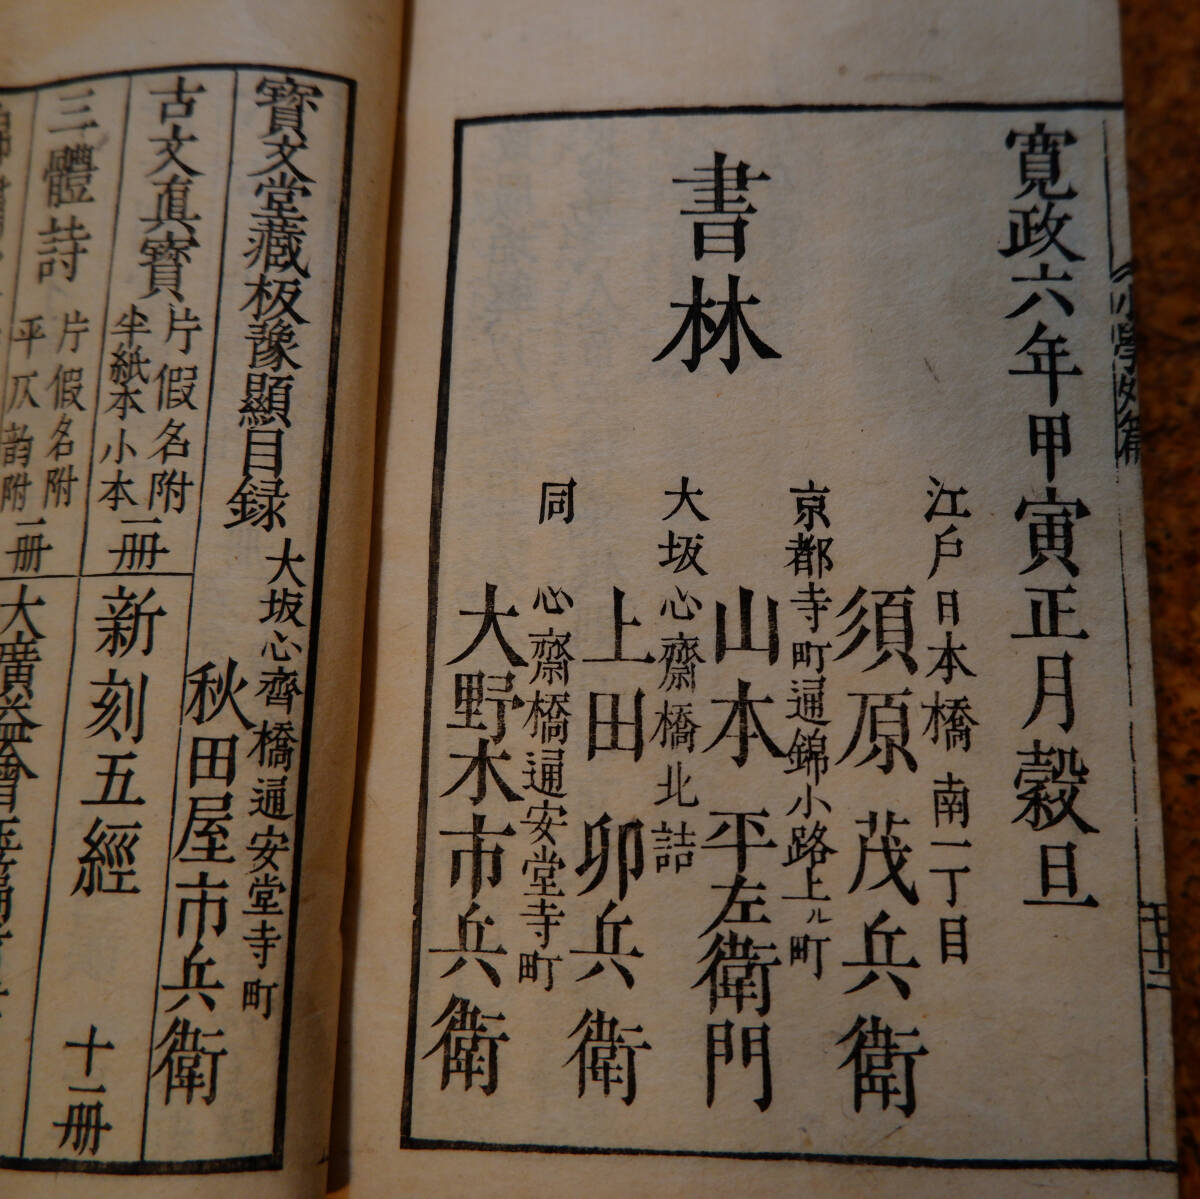 小學外篇
寛政六年甲寅正月穀旦
江戸日本橋南一丁目
須原茂兵衛
京都寺町通錦小路上ル町
山本平左衛門
大坂心齋橋北詰
上田卯兵衛
同心齋橋通安堂寺町
大野木市兵衛
書林
寶文堂藏板豫顯目録
大坂心齊橋通安堂寺町
秋田屋市兵衛
古文眞寶
片假名附
半紙本小本
二册
新刻五經
十一册
三體詩
片假名附
平仄韵附
一册